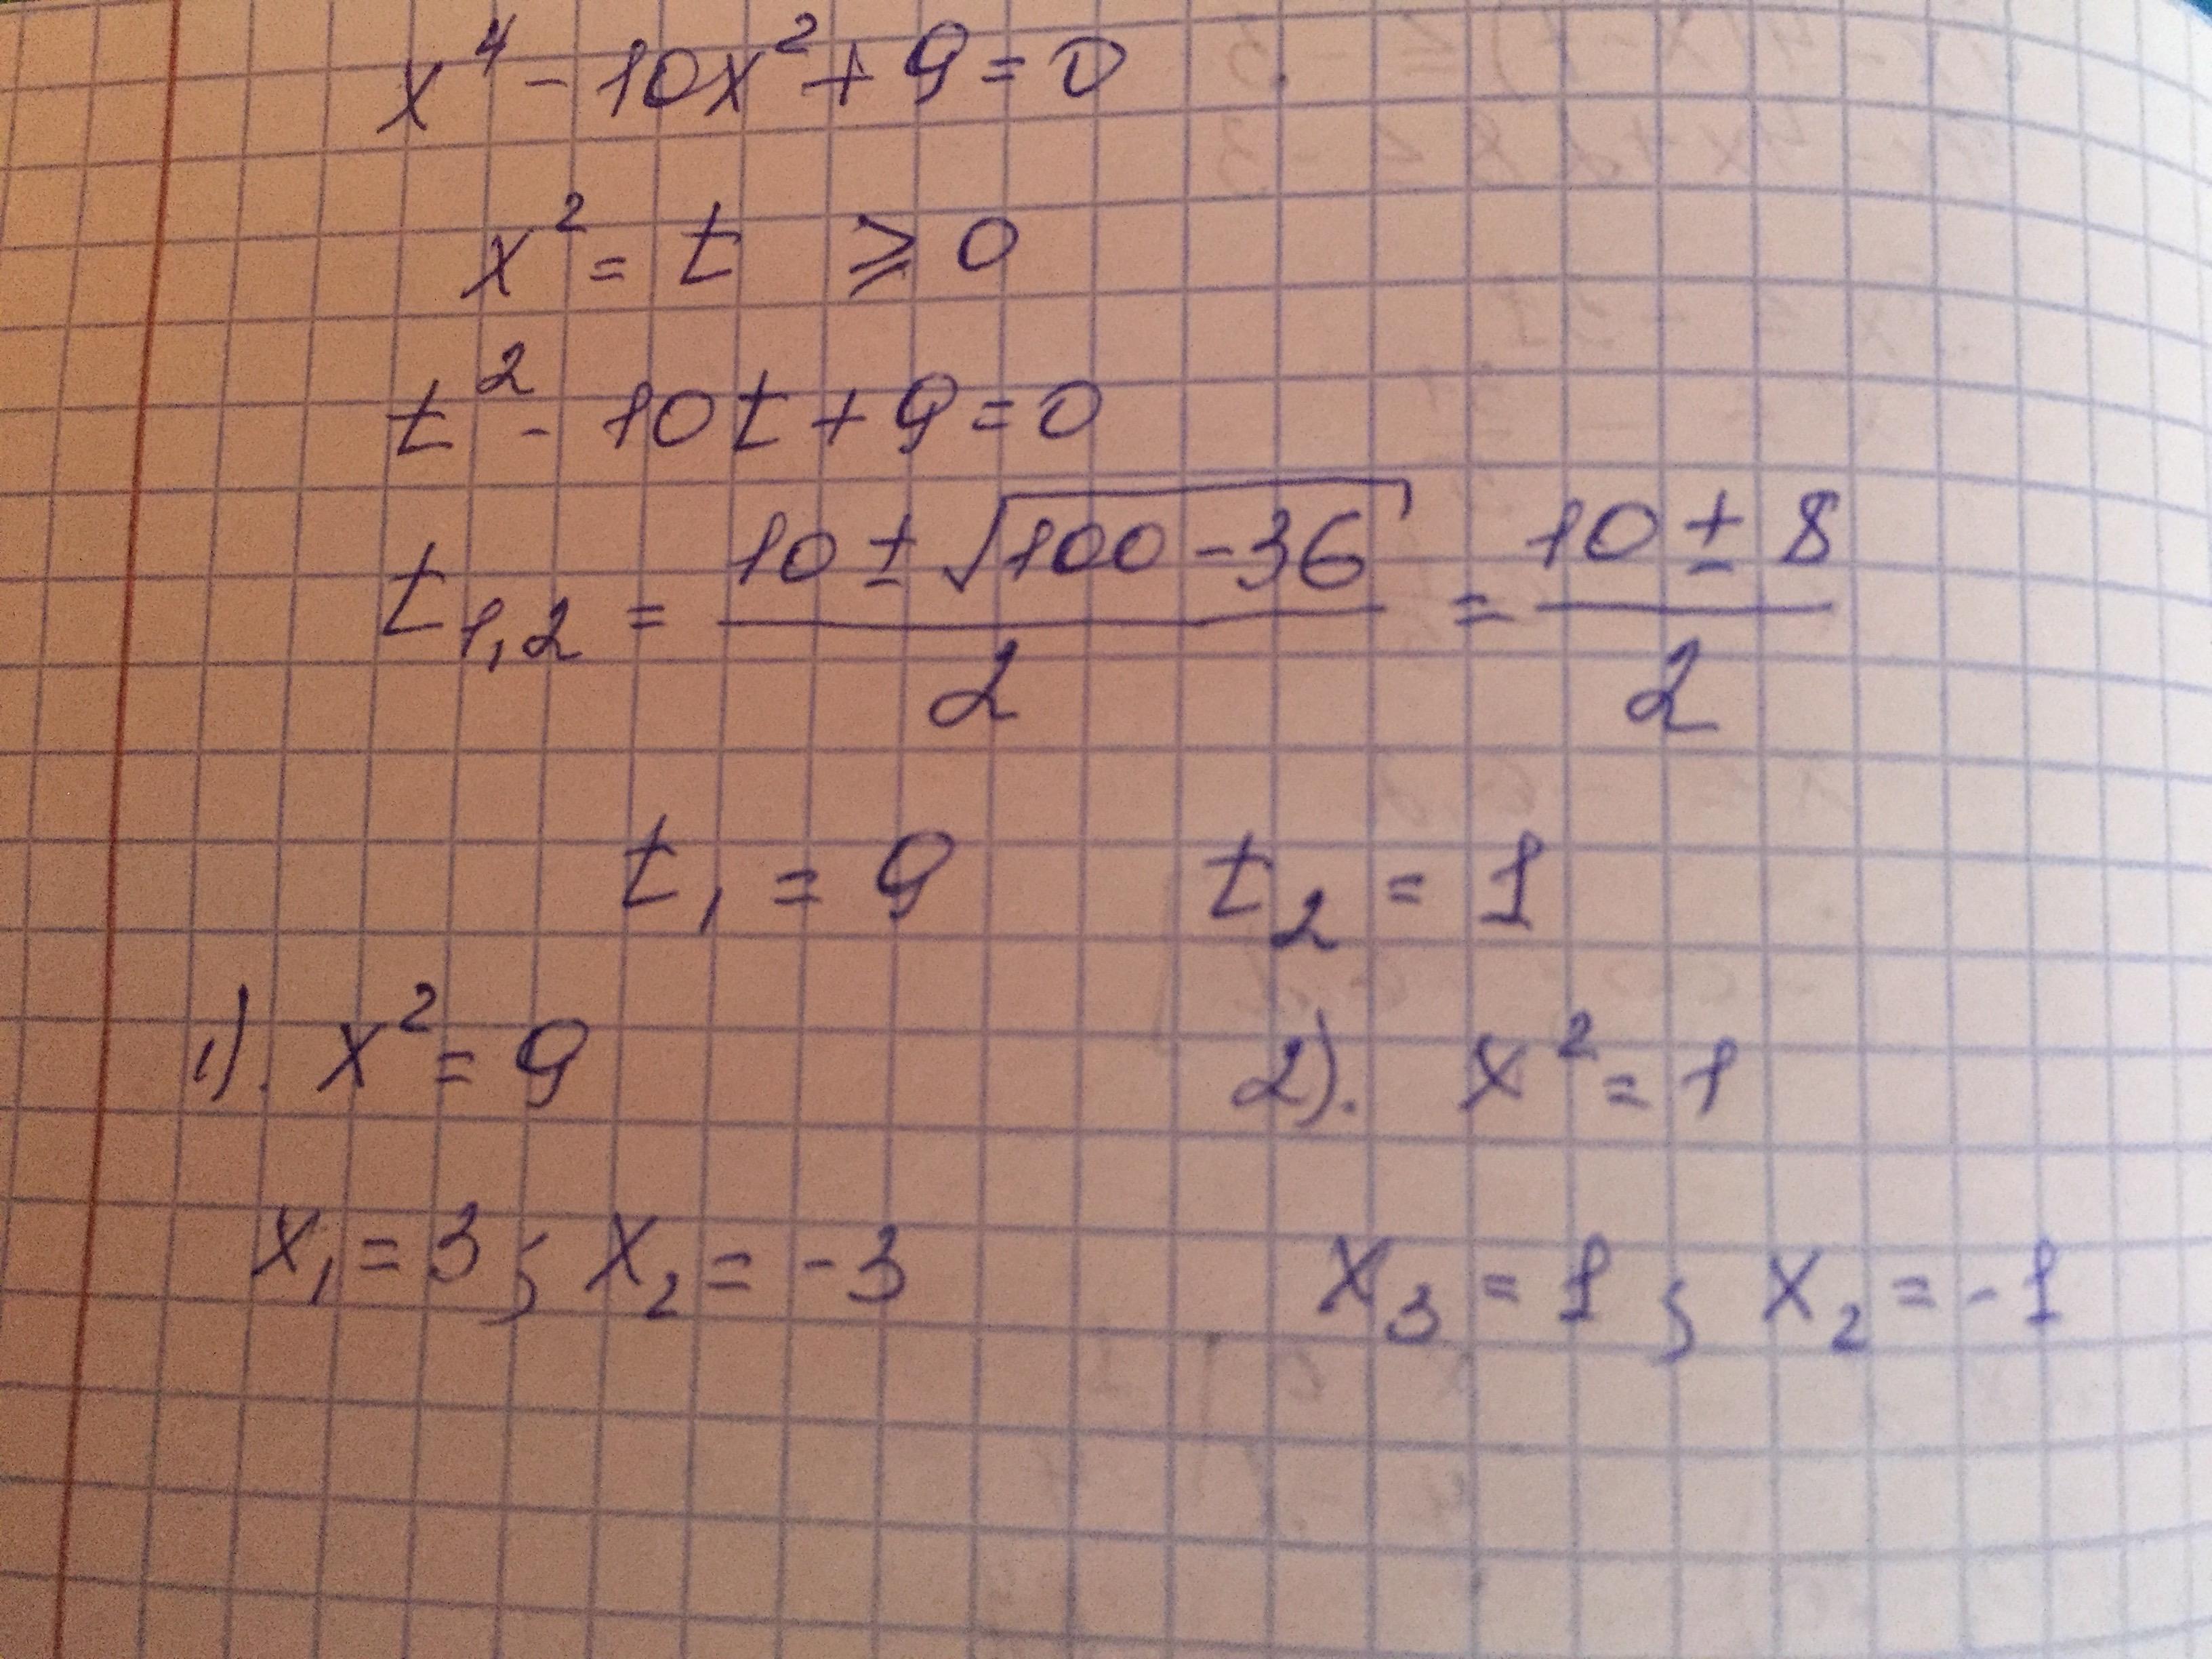 x⁴ - 10x² + 9 = 0
x² = t ⩾ 0
t² - 10t + 9 = 0
t₁,₂ = (10 ± √(100 - 36))/2 = (10 ± 8)/2
t₁ = 9 t₂ = 1
1). x² = 9 2). x² = 1
x₁ = 3 ; x₂ = -3 x₃ = 1 ; x₂ = -1